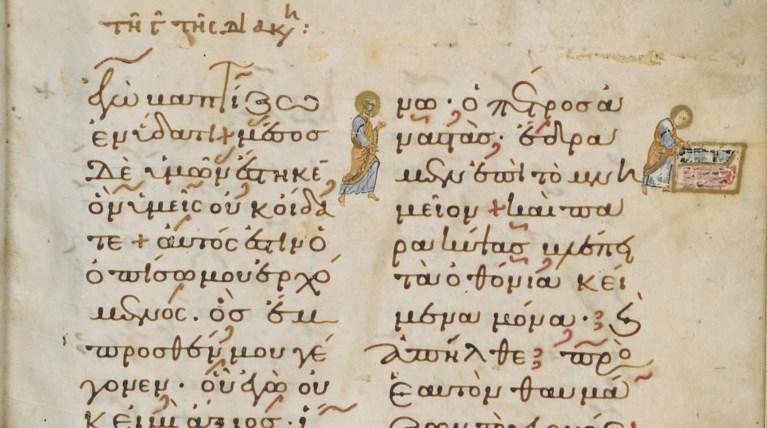 τῆ γ τῆς διακ
ἐγὼ βαπτίζω
ἐν ὕδατι + μέσος
δὲ ὑμῶν ἕστηκε
ὃν ὑμεῖς οὐκ οἴδα
τε + αὐτός ἐστιν ὁ
ὀπίσω μου ἐρχό
μενος. ὃς ἔμ
προσθέν μου γέ
γονεν· οὗ ἐγὼ οὐ
κ εἰμὶ ἄξιος· ἵ
νω· ὁ πέτρος ἀ
ναστὰς· ἔδρα
μεν ἐπὶ τὸ μνη
μεῖον + καὶ πα
ρακύψας βλέπει
τὰ ὀθόνια κεί
μενα μόνα· καὶ
ἀπῆλθε πρὸς
ἑαυτὸν θαυμά
ζων τὸ γεγονός